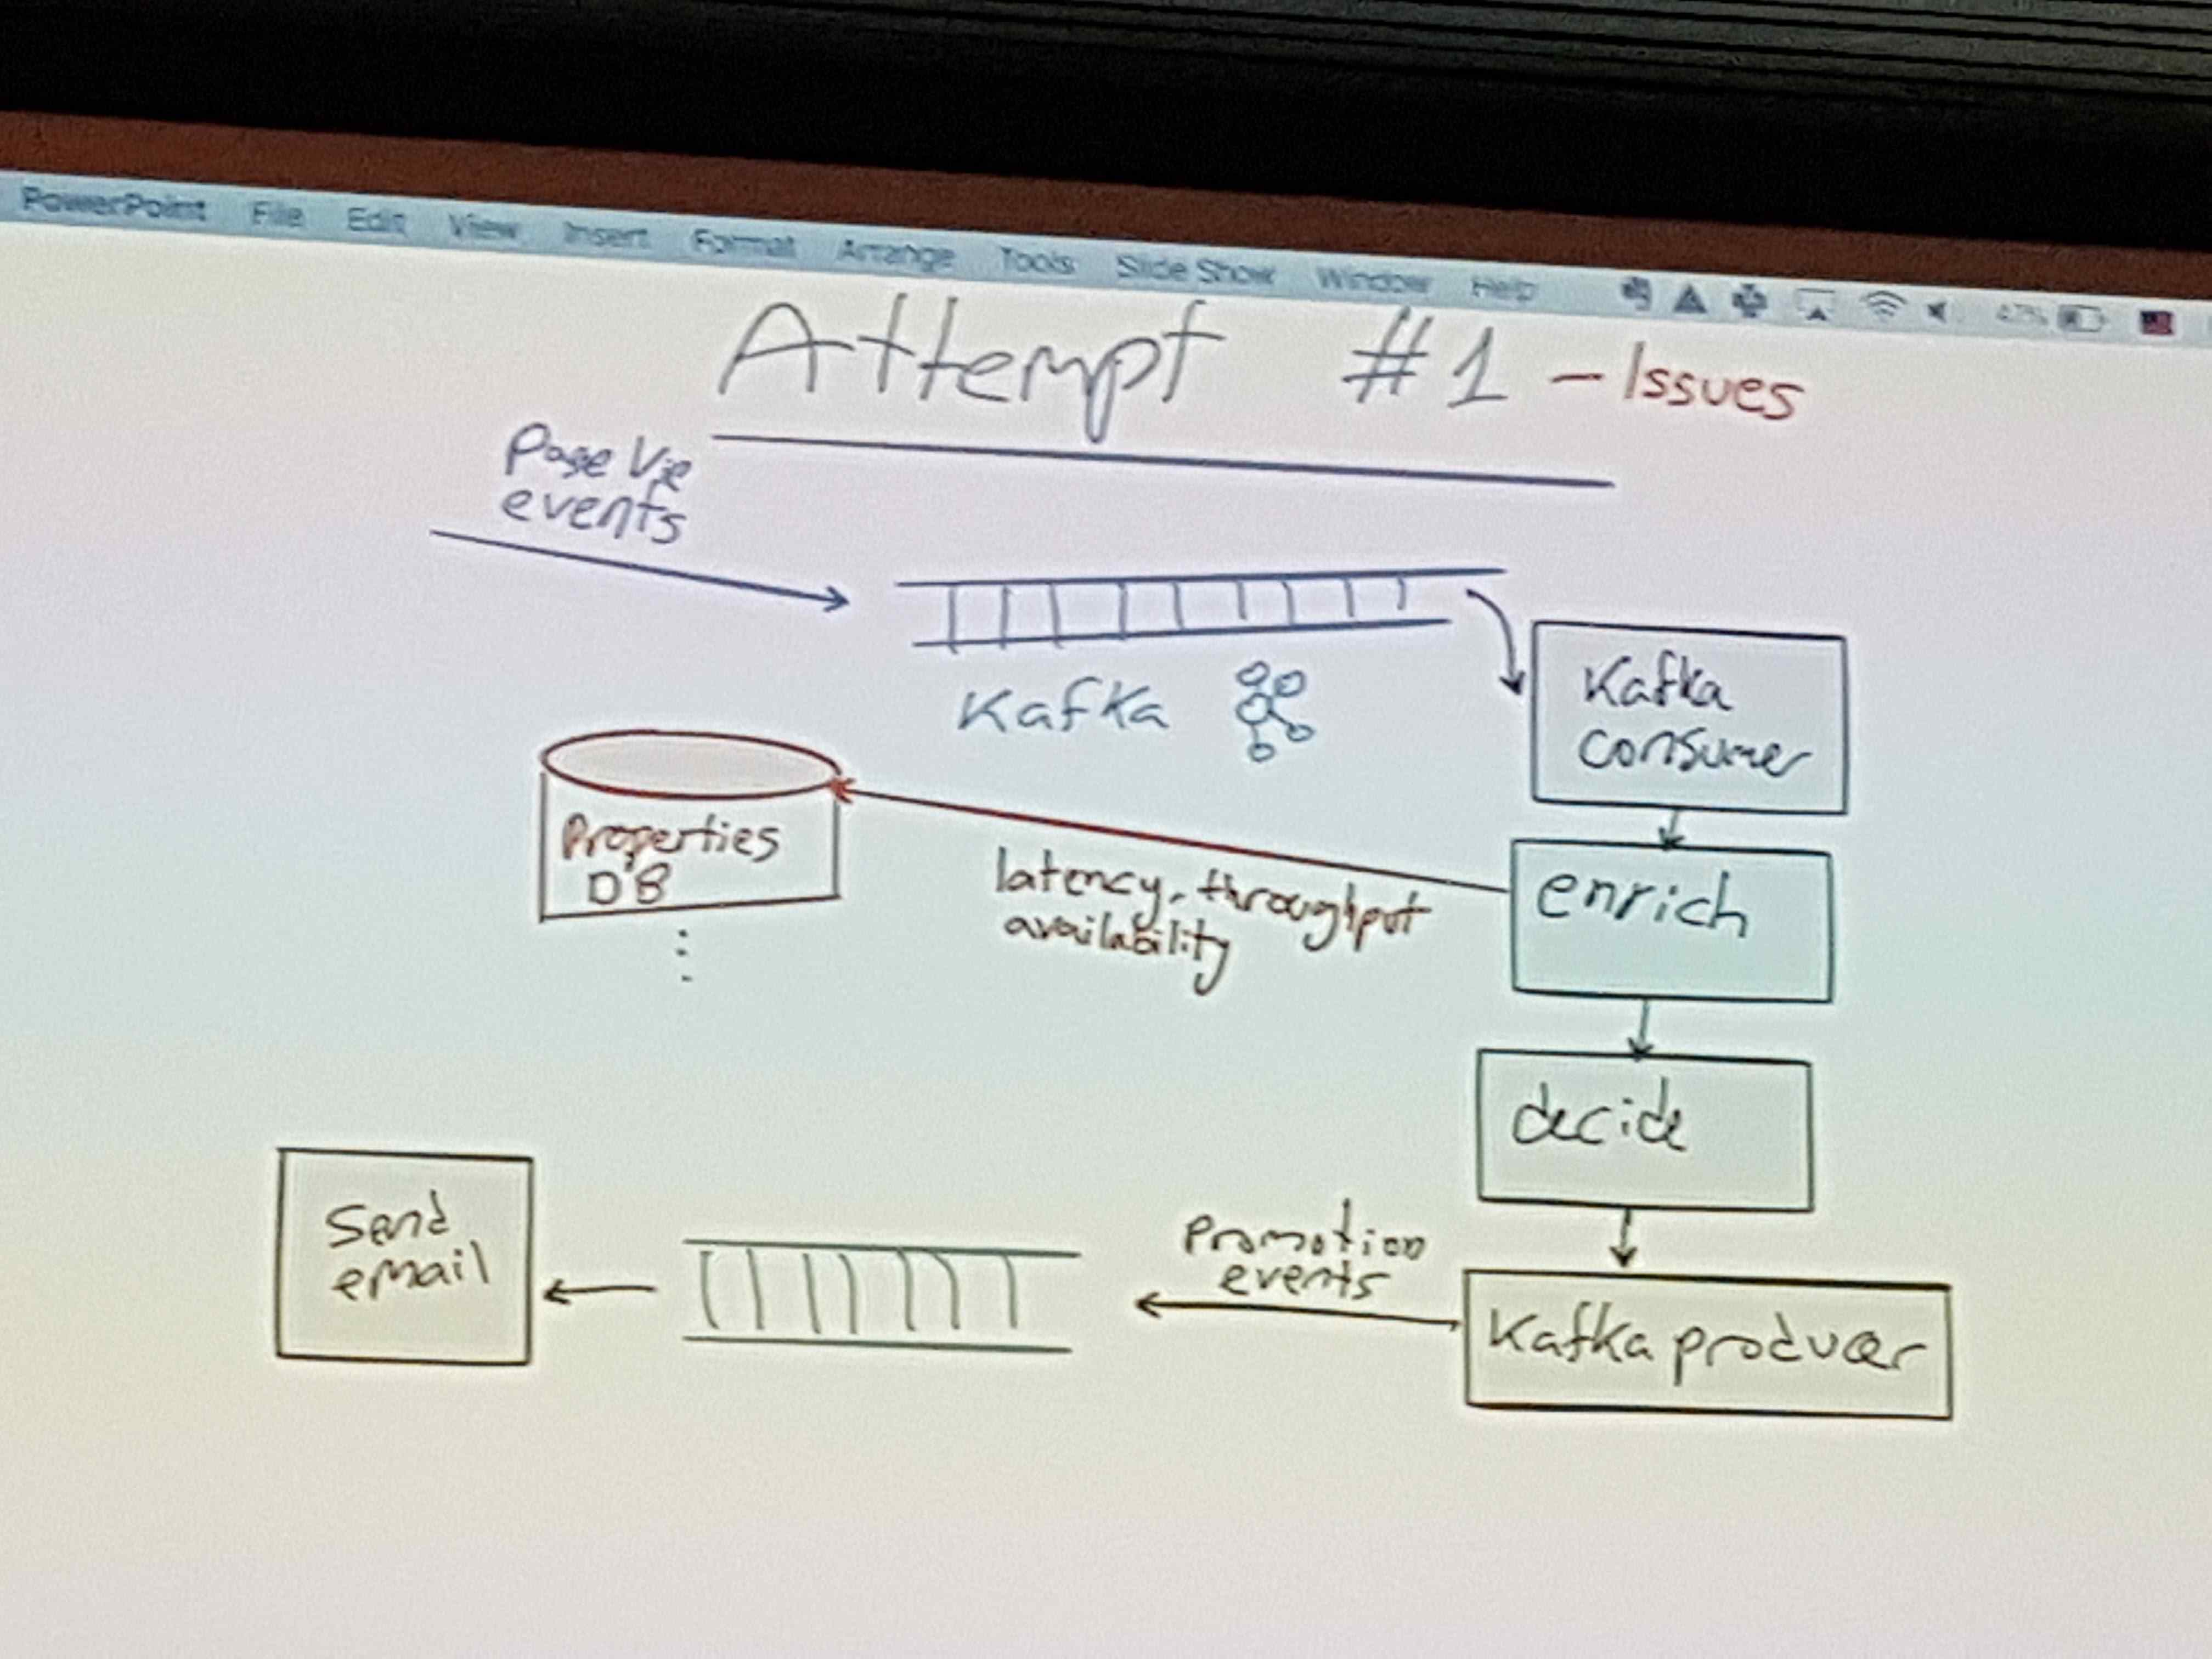 PowerPoint File Edit View Insert Format Arrange Tools Slide Show Window Help 47%
Attempt #1 - Issues
Page Vie
events
Kafka
Kafka
consumer
Properties
DB
latency, throughput
availability
enrich
decide
Promotion
events
Send
email
Kafka producer